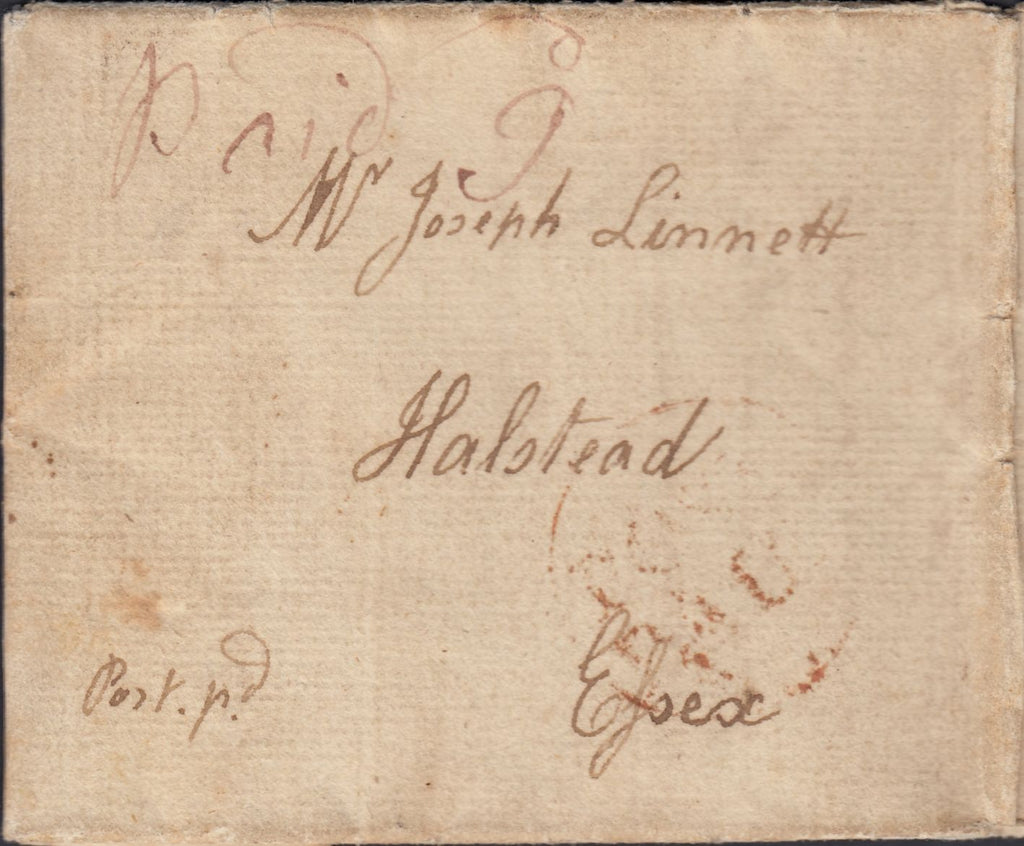 Paid 9
Mr Joseph Linnett
Halstead
Essex
Post. pd